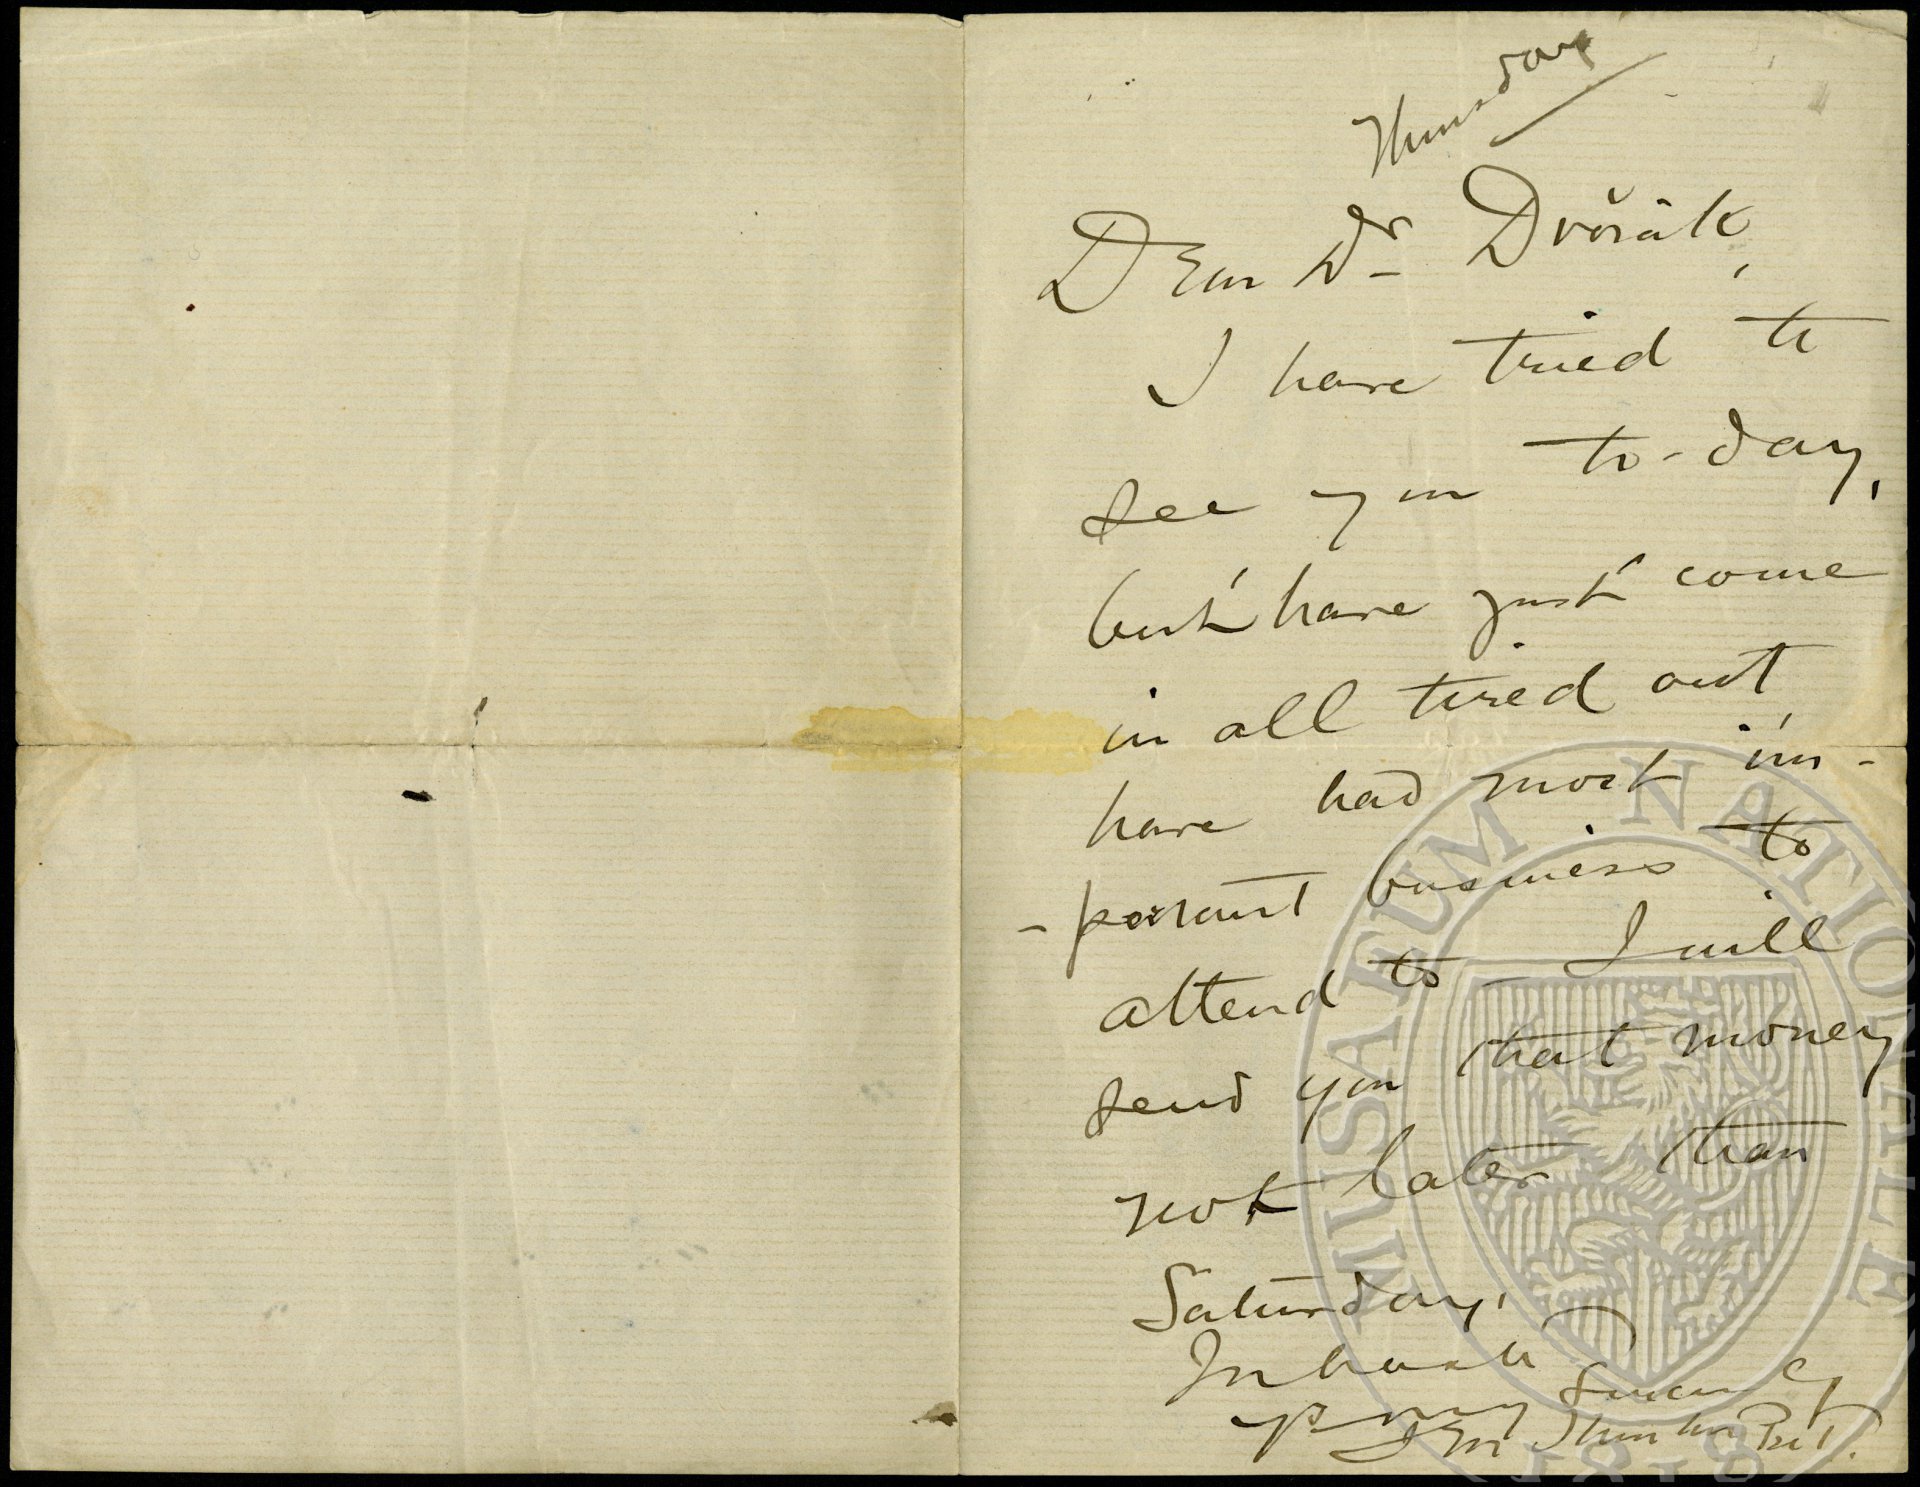 Thursday
Dear Dr Dvořák,
I have tried to
see you to-day,
but have just come
in all tired out
have had most im-
-portant business to
attend to I will
send you that money
not later than
Saturday.
In haste
yours sincerely
J M Thurber Pst.
MUSAEUM NATIONALE
1818